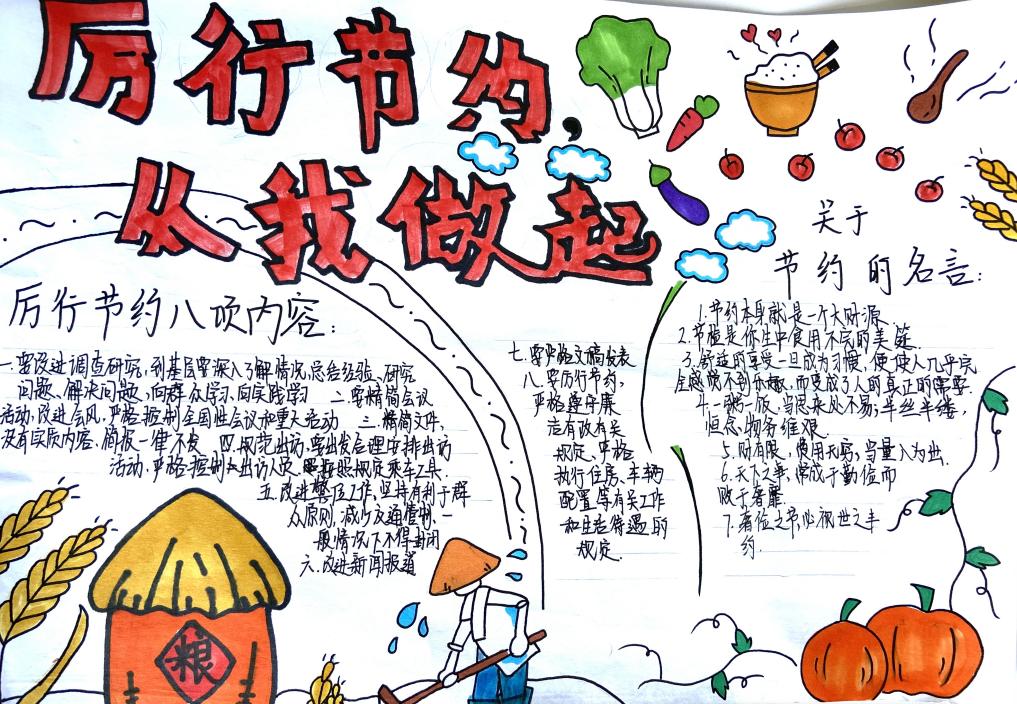 厉行节约,
从我做起
厉行节约八项内容:
一.要改进调查研究,到基层要深入了解情况,总结经验、研究
问题、解决问题,向群众学习、向实践学习 二.要精简会议
活动,改进会风,严格控制全国性会议和重大活动 三.精简文件,
没有实质内容,简报一律不发 四.规范出访,要出发合理安排出访
活动,严格控制出访人员 照规定乘车工具.
五.改进警卫工作,坚持有利于群
众原则,减少交通管制,一
般情况下不得封闭
六.改进新闻报道
七.要严格文稿发表
八.要厉行节约,
严格遵守廉
洁有政有关
规定,严格
执行住房、车辆
配置等有关工作
和生活待遇的
规定.
关于
节约的名言:
1.节约本身就是一个大财源.
2.节俭是你生中食用不完的美筵.
3.舒适的享受一旦成为习惯,便使人几乎完
全感觉不到乐趣,而变成了人的真正的需要.
4.一粥一饭,当思来处不易;半丝半缕,
恒念物力维艰.
5.财有限,费用无穷,当量入为出.
6.天下之事,常成于勤俭而
败于奢靡.
7.奢俭之节必视世之丰
约.
粮